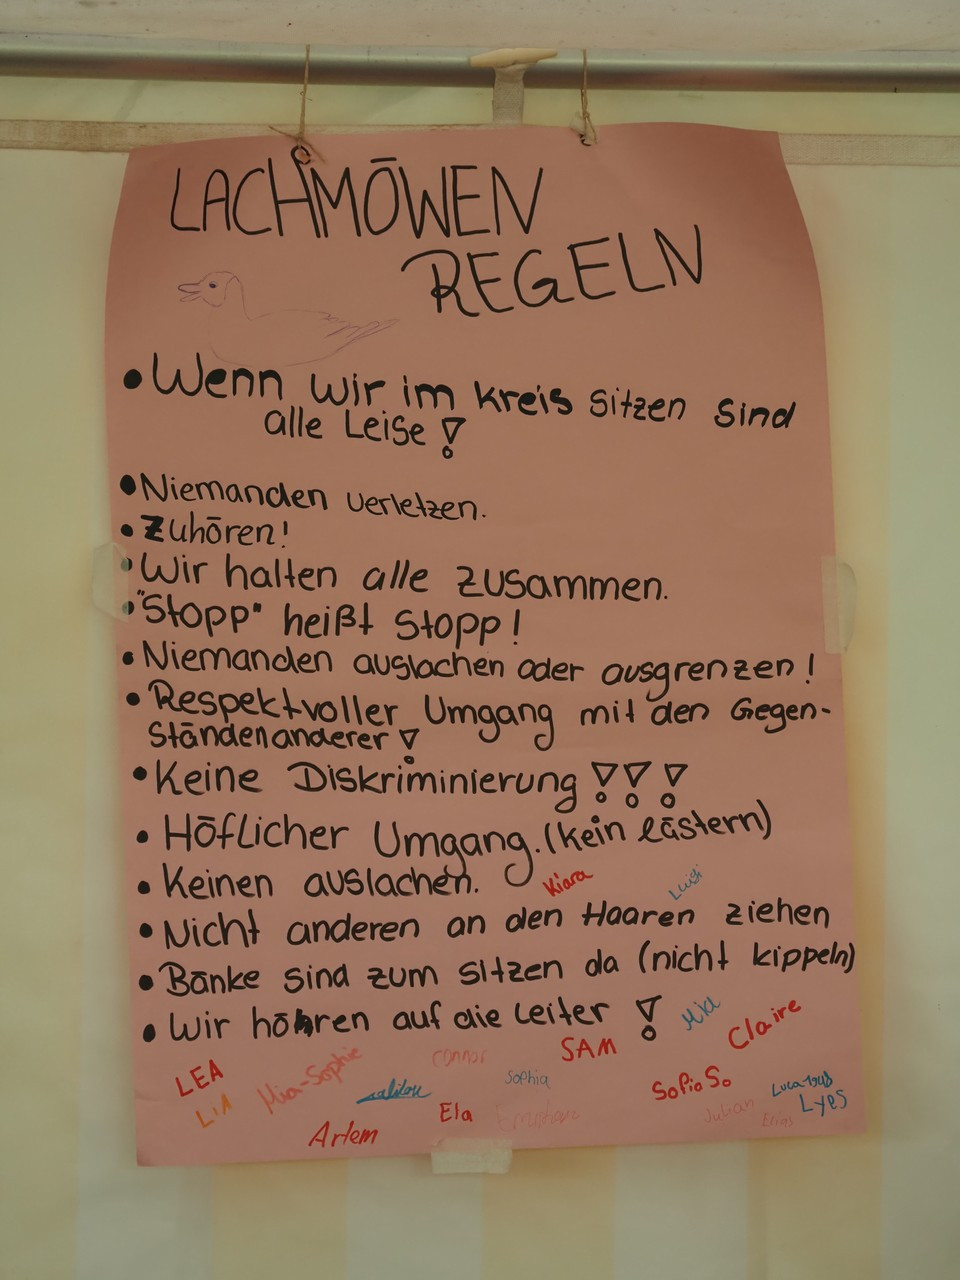 LACHMÖWEN
REGELN
• Wenn wir im kreis sitzen sind
alle Leise!
• Niemanden verletzen.
• Zuhören!
• Wir halten alle zusammen.
• "Stopp" heißt Stopp!
• Niemanden auslachen oder ausgrenzen!
• Respektvoller Umgang mit den Gegen-
ständen anderer!
• Keine Diskriminierung!!!
• Höflicher Umgang. (kein lästern)
• Keinen auslachen.
Kiara Luigi
• Nicht anderen an den Haaren ziehen
• Bänke sind zum sitzen da (nicht kippeln)
• Wir höhren auf die Leiter!
Mia Claire
LEA Mia-Sophie Connor SAM
LIA Sophia Sofia So. Luca
Artem Ela Julian Lyes